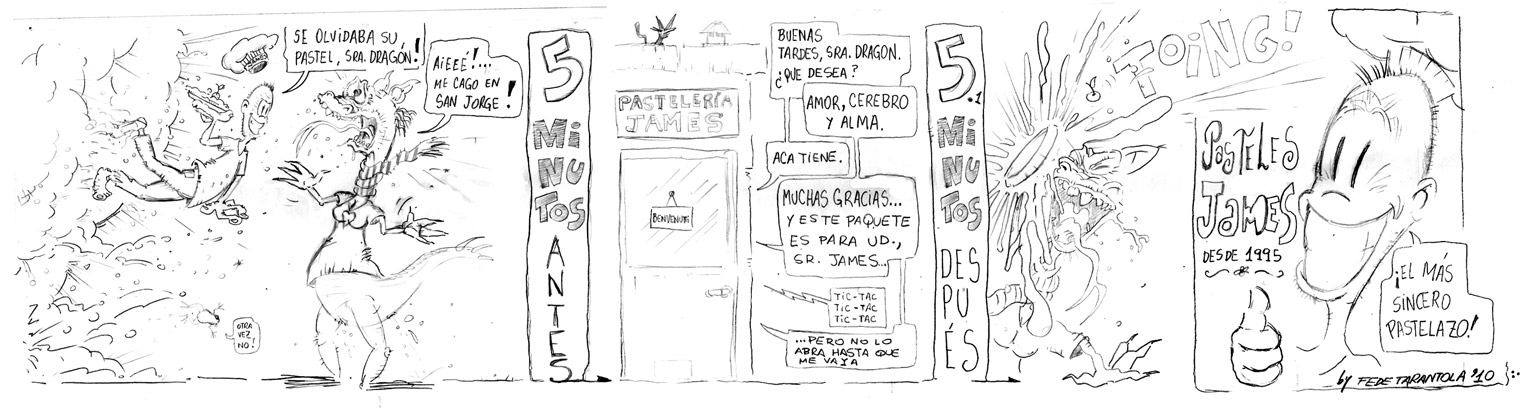 SE OLVIDABA SU
PASTEL, SRA. DRAGÓN!
AiEEÉ!...
ME CAGO EN
SAN JORGE!
OTRA
VEZ
NO!
5
MiNUTOS
ANTES
PASTELERÍA
JAMES
BENVENUTI
BUENAS
TARDES, SRA. DRAGON.
¿QUE DESEA?
AMOR, CEREBRO
Y ALMA.
ACA TIENE.
MUCHAS GRACIAS...
Y ESTE PAQUETE
ES PARA UD.,
SR. JAMES...
TiC-TAC
TiC-TAC
TiC-TAC
...PERO NO LO
ABRA HASTA QUE
ME VAYA
5.1
MiNUTOS
DESPUÉS
TOiNG!
PASTELES
JAMES
DESDE 1995
¡EL MÁS
SINCERO
PASTELAZO!
by FEDE TARANTOLA '10